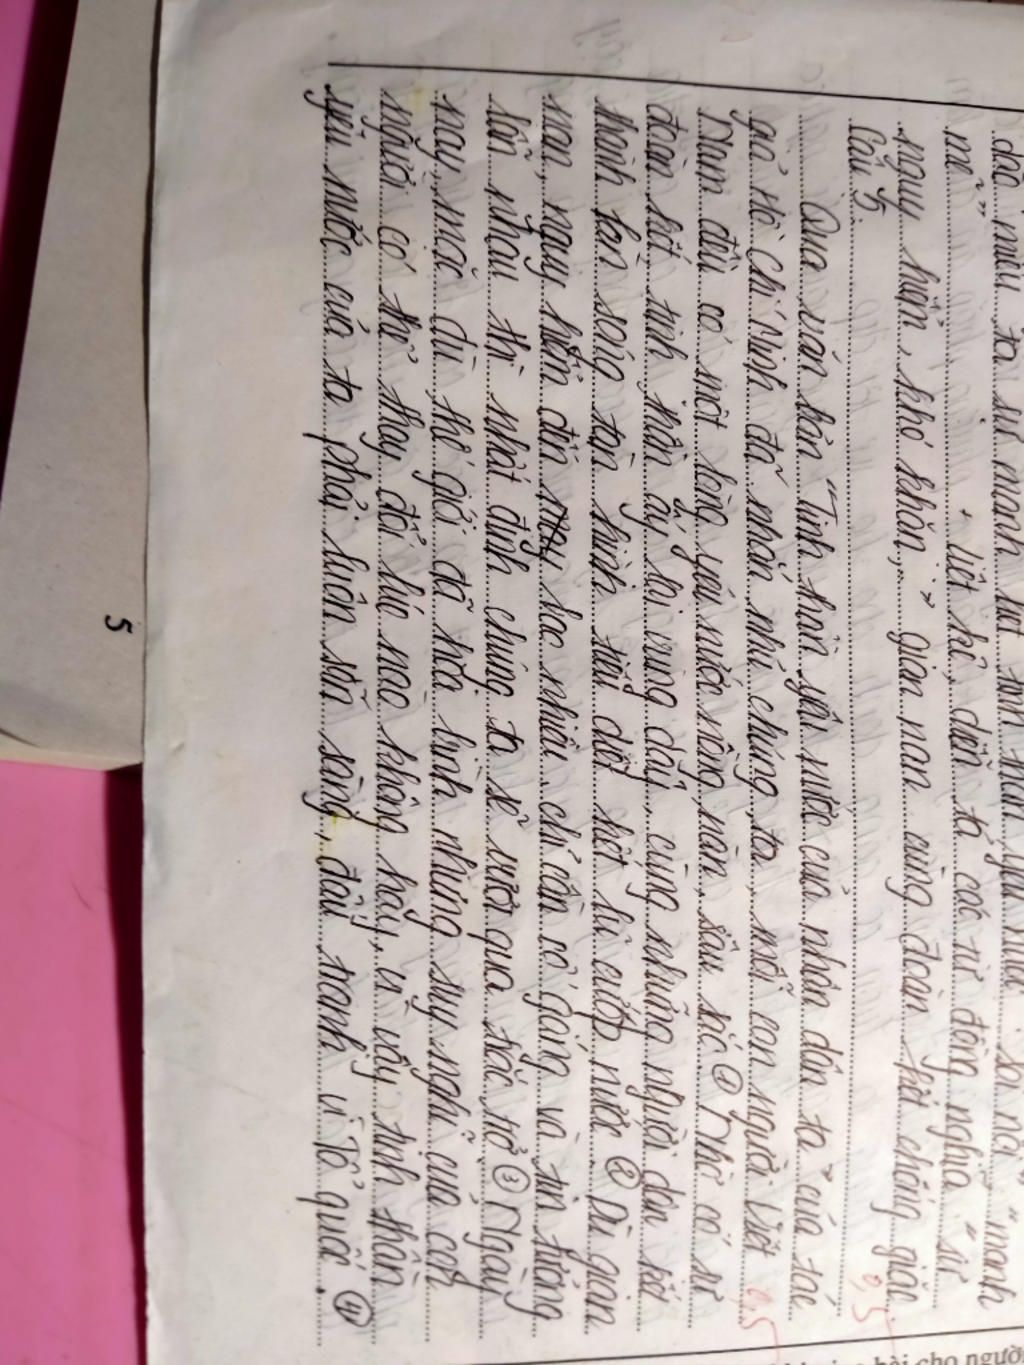 dào miêu tả sức mạnh lòng yêu nước: "sôi nổi", "mạnh
mẽ"
• liệt kê, diễn tả các từ đồng nghĩa "sự
nguy hiểm, khó khăn,..." gian nan cùng đoàn kết chống giặc
0,5
Câu 5.
Qua văn bản "Tinh thần yêu nước của nhân dân ta" của tác
giả Hồ Chí Minh đã nhắn nhủ chúng ta, mỗi con người Việt
0,5
Nam đều có một lòng yêu nước nồng nàn, sâu sắc ① Nhờ có sự
đoàn kết, tinh thần ấy lại vùng dậy, cùng những người dân kết
thành làn sóng to hình tiêu diệt hết lũ cướp nước ② Dù gian
nan, nguy hiểm đến bao nhiêu chỉ cần cố gắng và tin tưởng
lẫn nhau thì nhất định chúng ta sẽ vượt qua trắc trở ③ Ngày
nay, mặc dù thế giới đã hòa bình nhưng suy nghĩ của con
người có thể thay đổi lúc nào không hay, vì vậy tinh thần
yêu nước của ta phải luôn sẵn sàng, đấu tranh vì Tổ quốc. ④
5
bài cho người